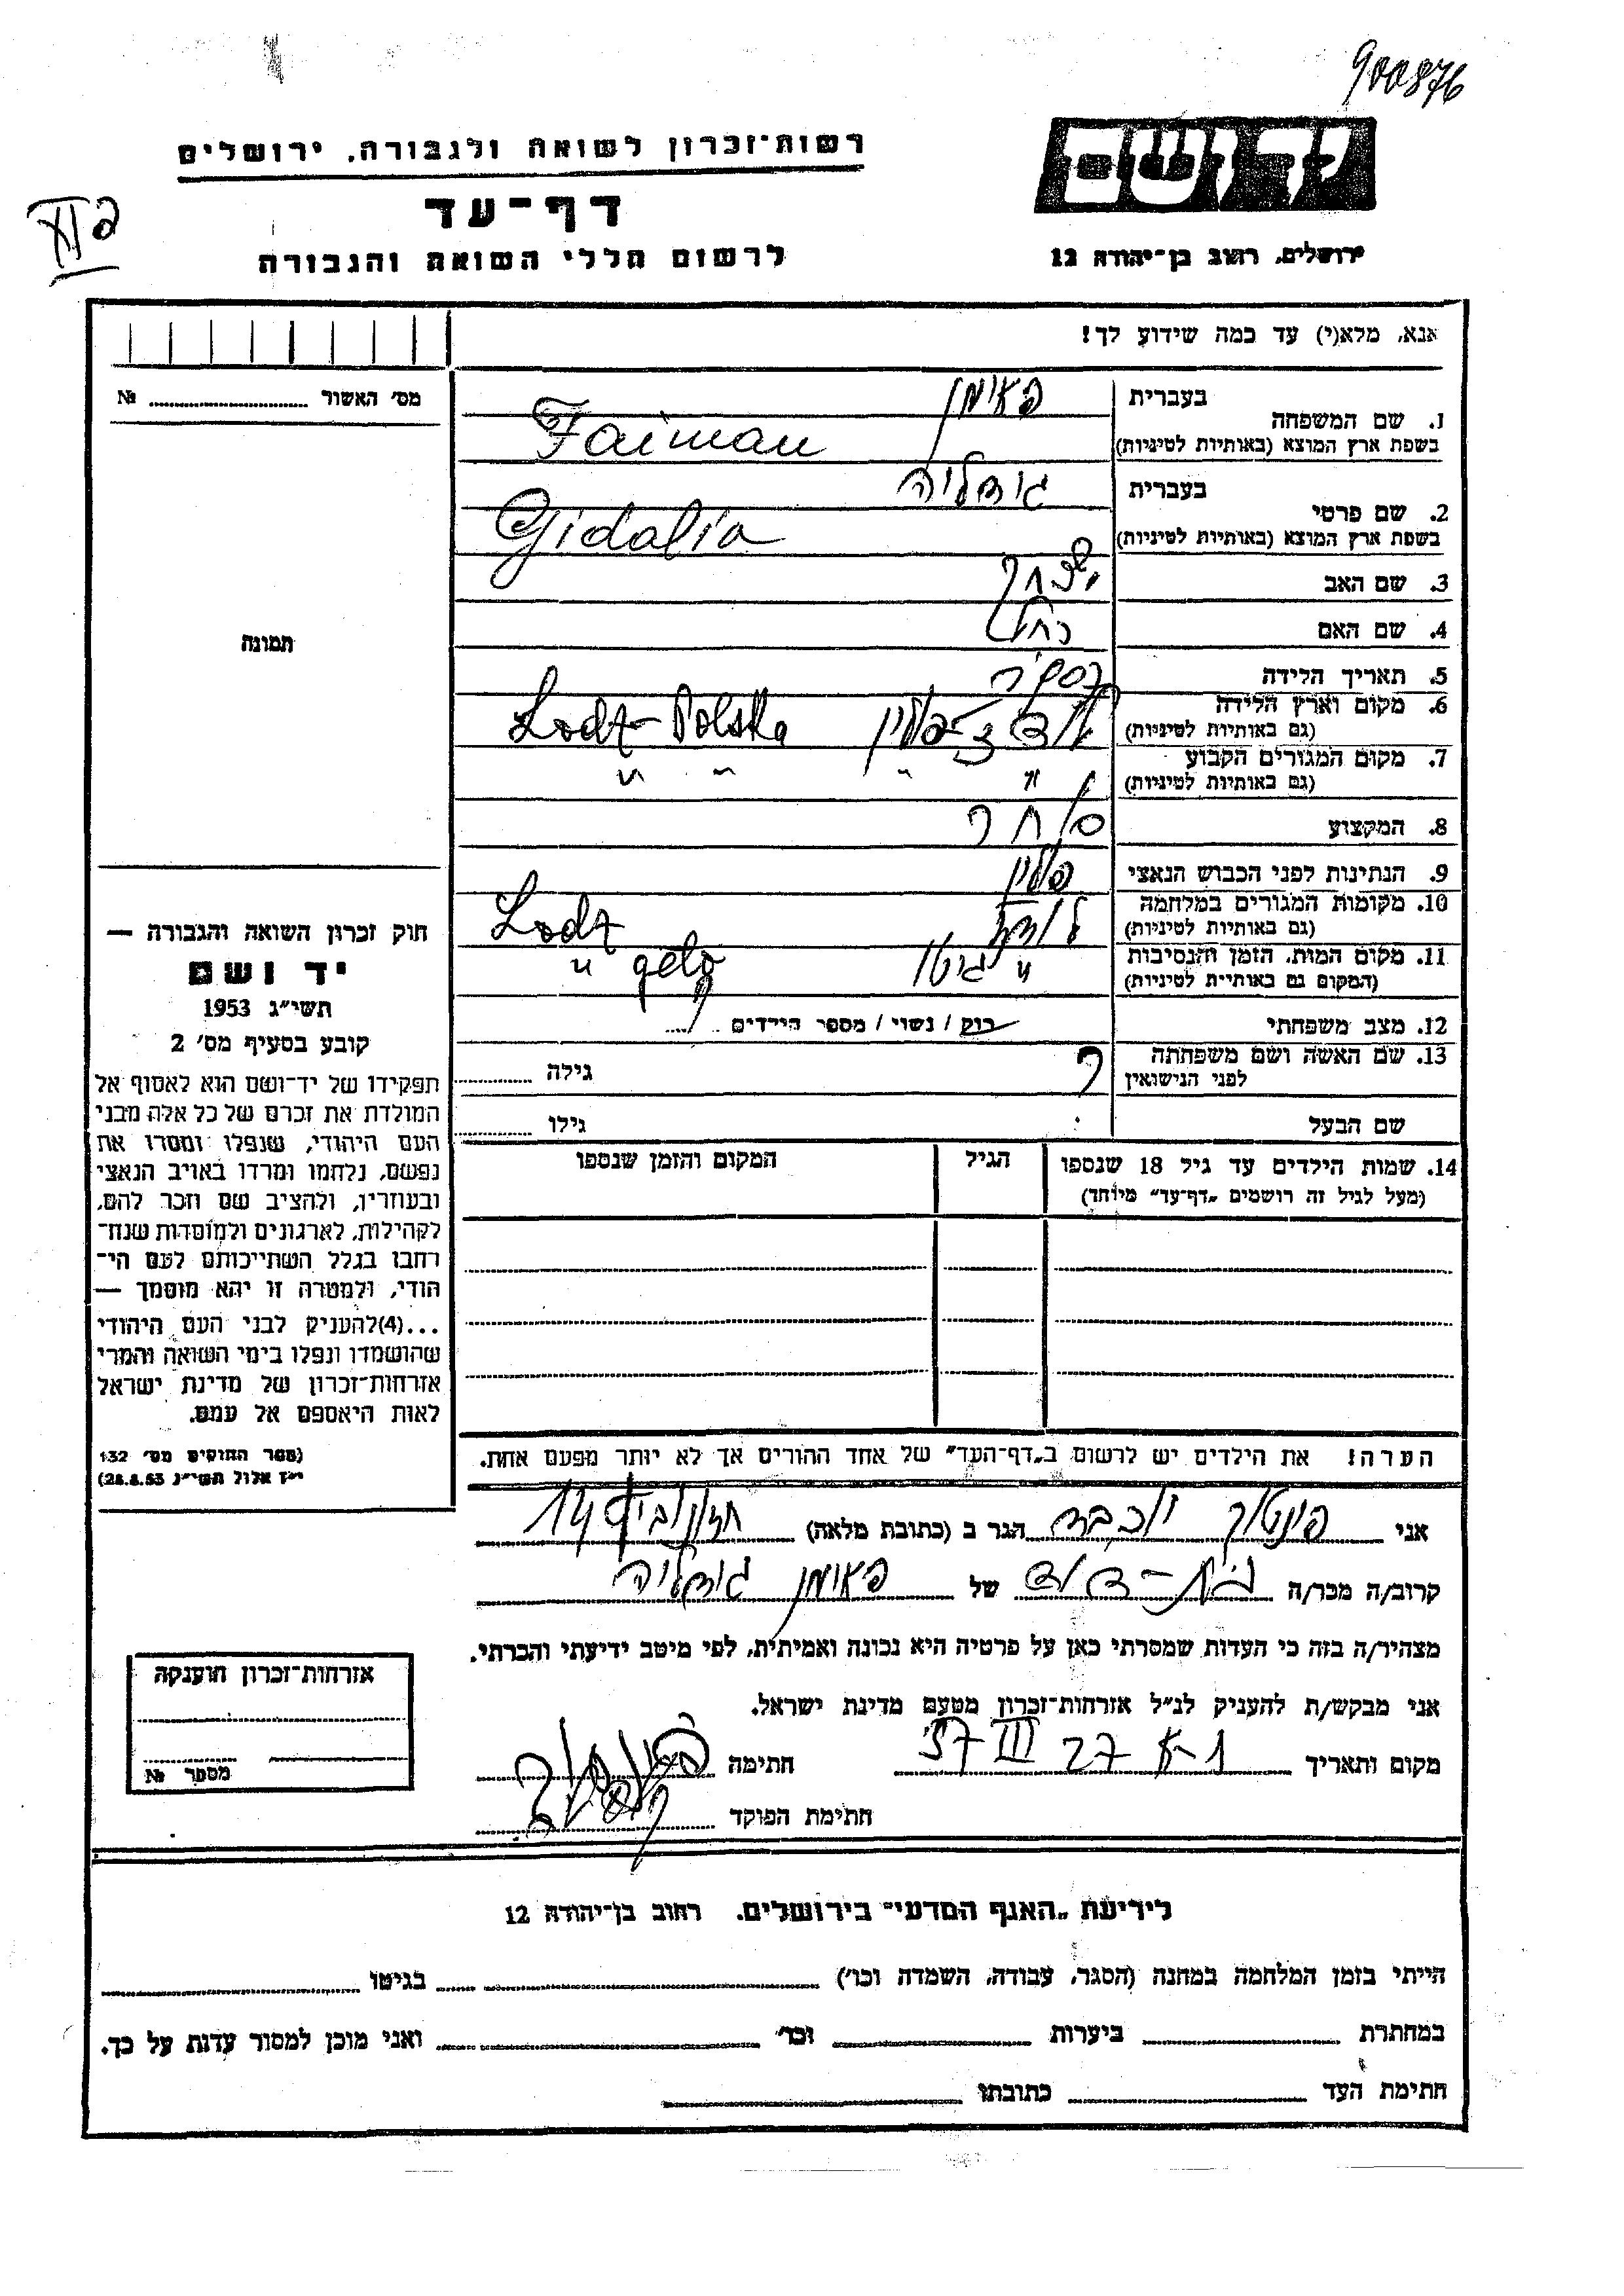 900876
יד ושם
רשות־זכרון לשואה ולגבורה, ירושלים
דף־עד
לרשום חללי השואה והגבורה
ירושלים, רחוב בן־יהודה 12
אנא, מלא(י) עד כמה שידוע לך!
מס׳ האשור №
1. שם המשפחה
בעברית פאימן
בשפת ארץ המוצא (באותיות לטיניות) Faiman
2. שם פרטי
בעברית גידליה
בשפת ארץ המוצא (באותיות לטיניות) Gidalia
3. שם האב יצחק
4. שם האם רחל
5. תאריך הלידה
6. מקום וארץ הלידה
(גם באותיות לטיניות) לודז־פולין Lodz-Polska
7. מקום המגורים הקבוע
(גם באותיות לטיניות) " " " "
8. המקצוע סוחר
9. הנתינות לפני הכבוש הנאצי פולין
10. מקומות המגורים במלחמה
(גם באותיות לטיניות) לודז Lodz
11. מקום המות, הזמן והנסיבות
(המקום גם באותיית לטיניות) " גיטו " geto
12. מצב משפחתי רוק / נשוי / מספר הילדים
13. שם האשה ושם משפחתה
לפני הנישואין ? גילה
שם הבעל גילו
14. שמות הילדים עד גיל 18 שנספו
(מעל לגיל זה רושמים „דף־עד" מיוחד)
הגיל
המקום והזמן שנספו
תמונה
חוק זכרון השואה והגבורה —
יד ושם
תשי״ג 1953
קובע בסעיף מס׳ 2
תפקידו של יד־ושם הוא לאסוף אל
המולדת את זכרם של כל אלה מבני
העם היהודי, שנפלו ומסרו את
נפשם, נלחמו ומרדו באויב הנאצי
ובעוזריו, ולהציב שם וזכר להם,
לקהילות, לארגונים ולמוסדות שנח־
רחבו בגלל השתייכותם לעם הי־
הודי, ולמטרה זו יהא מוסמך —
...(4)להעניק לבני העם היהודי
שהושמדו ונפלו בימי השואה והמרי
אזרחות־זכרון של מדינת ישראל
לאות היאספם אל עמם.
(ספר החוקים מס׳ 132
י״ז אלול תשי״ג 28.8.53)
הערה! את הילדים יש לרשום ב„דף־העד" של אחד ההורים אך לא יותר מפעם אחת.
אני יוכבד הגר ב (כתובת מלאה) 14
קרוב/ה מכר/ה בת-דוד של פאימן גידליה
מצהיר/ה בזה כי העדות שמסרתי כאן על פרטיה היא נכונה ואמיתית, לפי מיטב ידיעתי והכרתי.
אני מבקש/ת להעניק לנ״ל אזרחות־זכרון מטעם מדינת ישראל.
מקום ותאריך 27 III 57 חתימה
חתימת הפוקד
אזרחות־זכרון הוענקה
מספר №
לידיעת „האגף המדעי" בירושלים, רחוב בן־יהודה 12
הייתי בזמן המלחמה במחנה (הסגר, עבודה, השמדה וכו׳) בגיטו
במחתרת ביערות וכו׳ ואני מוכן למסור עדות על כך.
חתימת העד כתובתו